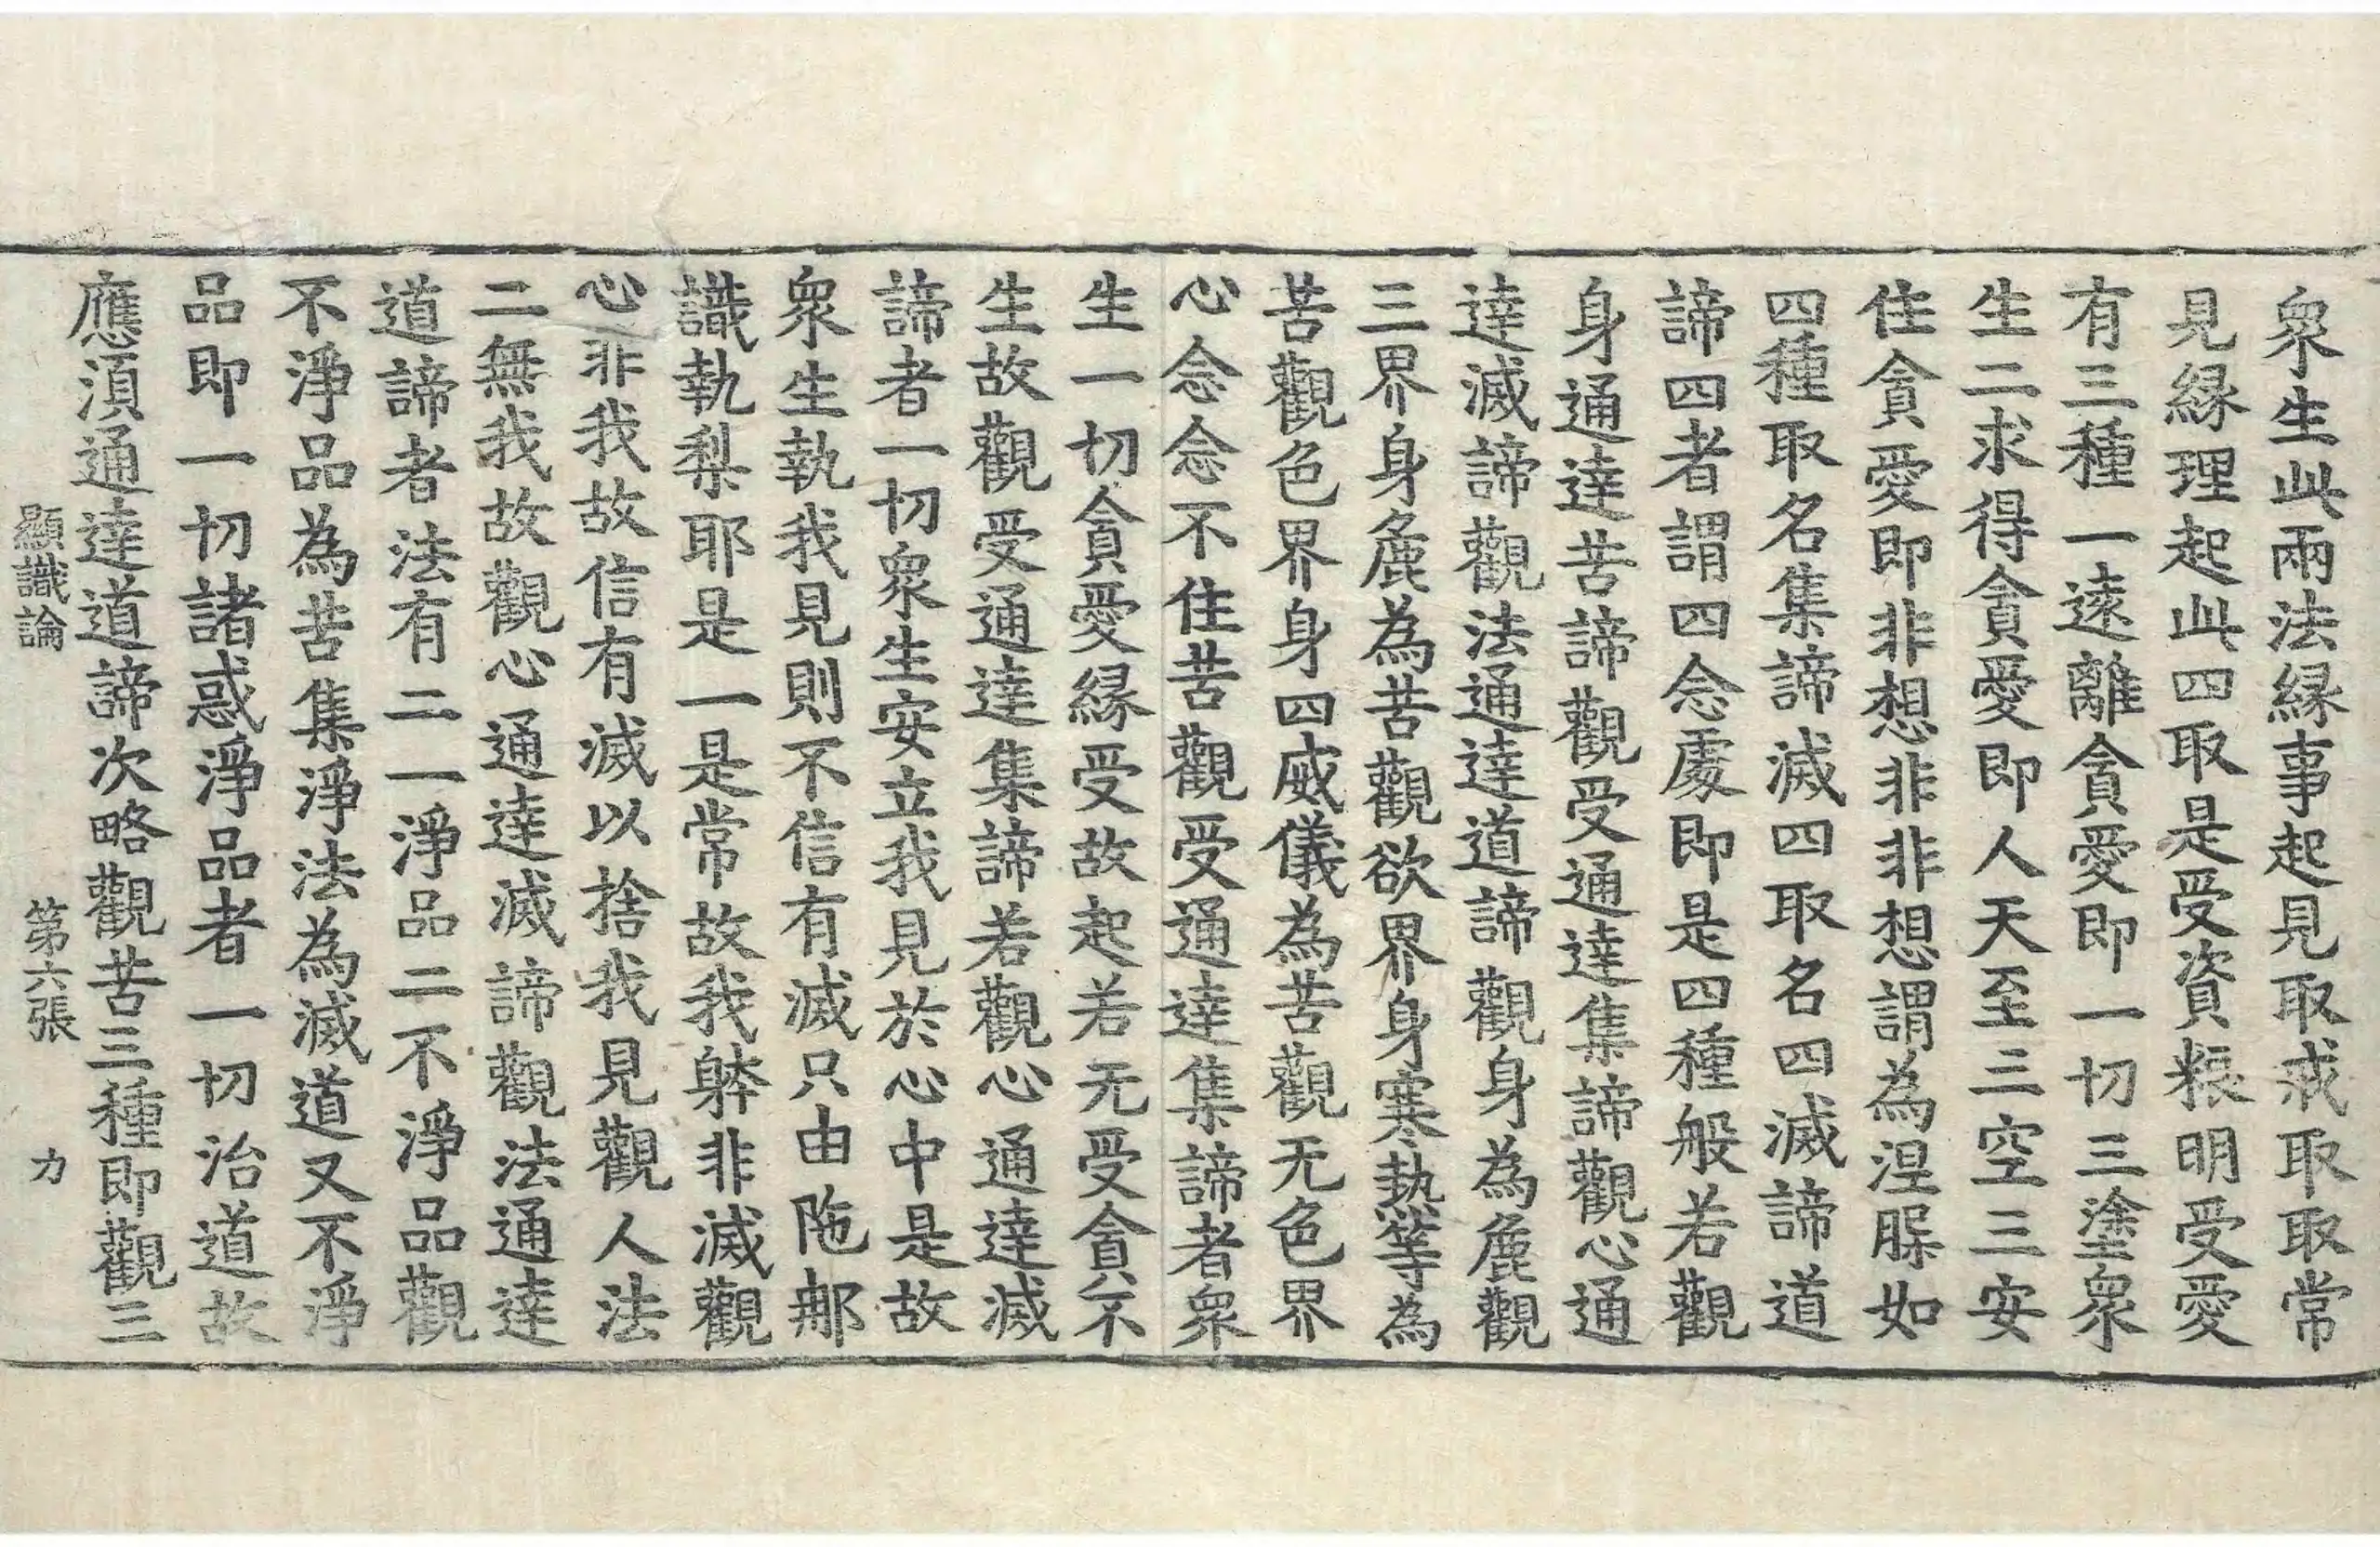 衆生此兩法緣事起見取戒取取常
見緣理起此四取是受資粮明受愛
有三種一遠離貪愛即一切三塗衆
生二求得貪愛即人天至三空三安
住貪愛即非想非非想謂為涅槃如
四種取名集諦滅四取名四滅諦道
諦四者謂四念處即是四種般若觀
身通達苦諦觀受通達集諦觀心通
達滅諦觀法通達道諦觀身為麁觀
三界身麁為苦觀欲界身寒熱等為
苦觀色界身四威儀為苦觀无色界
心念念不住苦觀受通達集諦者衆
生一切貪愛緣受故起若无受貪不
生故觀受通達集諦若觀心通達滅
諦者一切衆生安立我見於心中是故
衆生執我見則不信有滅只由陁那
識執梨耶是一是常故我躰非滅觀
心非我故信有滅以捨我見觀人法
二無我故觀心通達滅諦觀法通達
道諦者法有二一淨品二不淨品觀
不淨品為苦集淨法為滅道又不淨
品即一切諸惑淨品者一切治道故
應須通達道諦次略觀苦三種即觀三
顯識論　第六張　力